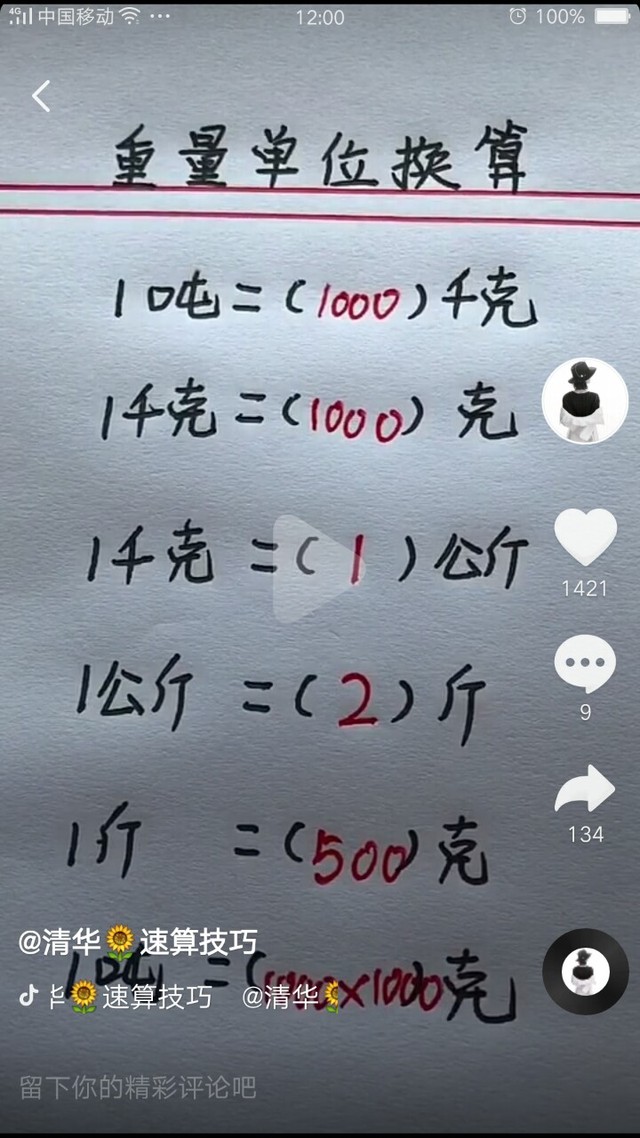 4G 中国移动 ··· 12:00 100%
重量单位换算
1吨=(1000)千克
1千克=(1000)克
1千克=(1)公斤
1421
1公斤=(2)斤
9
1斤=(500)克
134
@清华🌻速算技巧
1吨=(1000×1000)克
🌻速算技巧 @清华
留下你的精彩评论吧